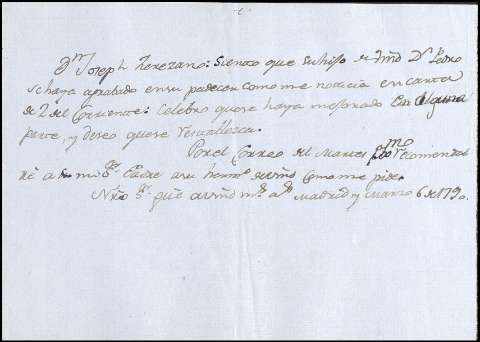 Dⁿ Joseph Zerezano: Siento que su hijo de Vmd Dⁿ Pedro
se haya agrabado en su padecer como me noticia en carta
de 2 del Corriente: Celebro que se haya mejorado en alguna
parte, y deseo que se restablezca.
Por el Correo del Martes proᵐᵒ recomendaℓ
ré a Padre a su hermº de Vmd como me pide.
Nro Sʳ gue a Vmd mˢ aˢ Madrid y Marzo 6 de 1790.